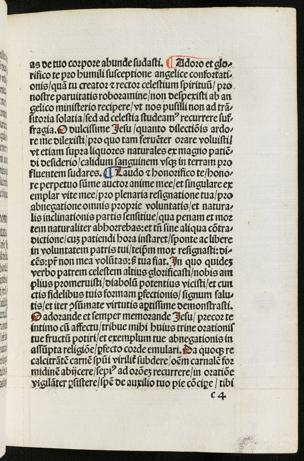 as de tuo corpore abunde sudasti. ¶ Adoro et glo-
rifico te pro humili susceptione angelice confortati-
onis/quā tu creator ⁊ rector celestium spirituū/ pro
nostre paruitatis roboramine/non despexisti ab an
gelico ministerio recipere/vt nos pusilli non ad trā-
sitoria solatia/sed ad celestia studeamꝰ recurrere suf-
fragia. O dulcissime Iesu/quanto dilectiōis ardo-
re me dilexisti/pro quo tam feruēter orare voluisti/
vt etiam supra liquores naturales ex magno patiē-
di desiderio/calidum sanguinem vsqꝫ in terram pro
fluentem sudares. ¶ Laudo ⁊ honorifico te/hono-
re perpetuo sūme auctor anime mee/et singulare ex
emplar vite mee/pro plenaria resignatione tua/pro
abnegatione omnis proprie voluntatis/et natura-
lis inclinationis partis sensitiue/qua penam et mor
tem naturaliter abhorrebas:et tn̄ sine aliqua cōtra-
dictione/cuꝫ patiendi hora instaret/sponte ac libere
in voluntatem patris tui/teip̄m mox resignasti:di-
cēs:pr̄ non mea volūtas:sꝫ tua fiat. In quo quideꝫ
verbo patrem celestem altius glorificasti/nobis am
plius promeruisti/diabolū potentius vicisti/et cun
ctis fidelibus tuis formam ꝑfectionis/ signum salu
tis/et iter ꝑssumate virtutis aptissime demonstrasti.
O adorande et semper memorande Iesu/ precor te
intimo cū affectu/tribue mihi huius trine orationis
tue fructū potiri/et exemplum tue abnegationis in
assūpta religiōe/ꝑfecto corde emulari. Da quoqꝫ re
calcitrātē carnē spūi virilit͛ subdere/oēm carnalē for
midinē abijcere/sepiꝰ ad orōeꝫ recurrere/in oratiōe
vigilāter ꝑsistere/spē de auxilio tuo pie cōcipe/ tibi
c 4